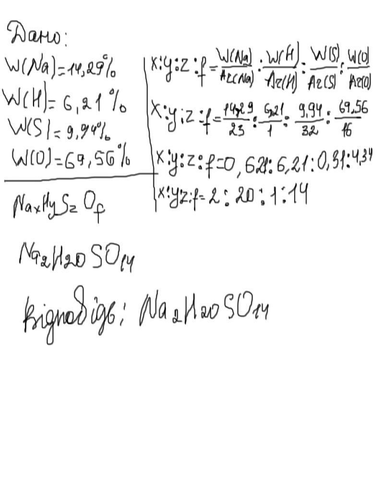 Дано:
W(Na)=14,29%
W(H)=6,21%
W(S)=9,94%
W(O)=69,56%
NaxHySzOf
x:y:z:f=W(Na)/Az(Na):W(H)/Az(H):W(S)/Az(S):W(O)/Az(O)
x:y:z:f=14,29/23:6,21/1:9,94/32:69,56/16
x:y:z:f=0,621:6,21:0,31:4,34
x:y:z:f=2:20:1:14
Na2H20SO14
Відповідь: Na2H20SO14